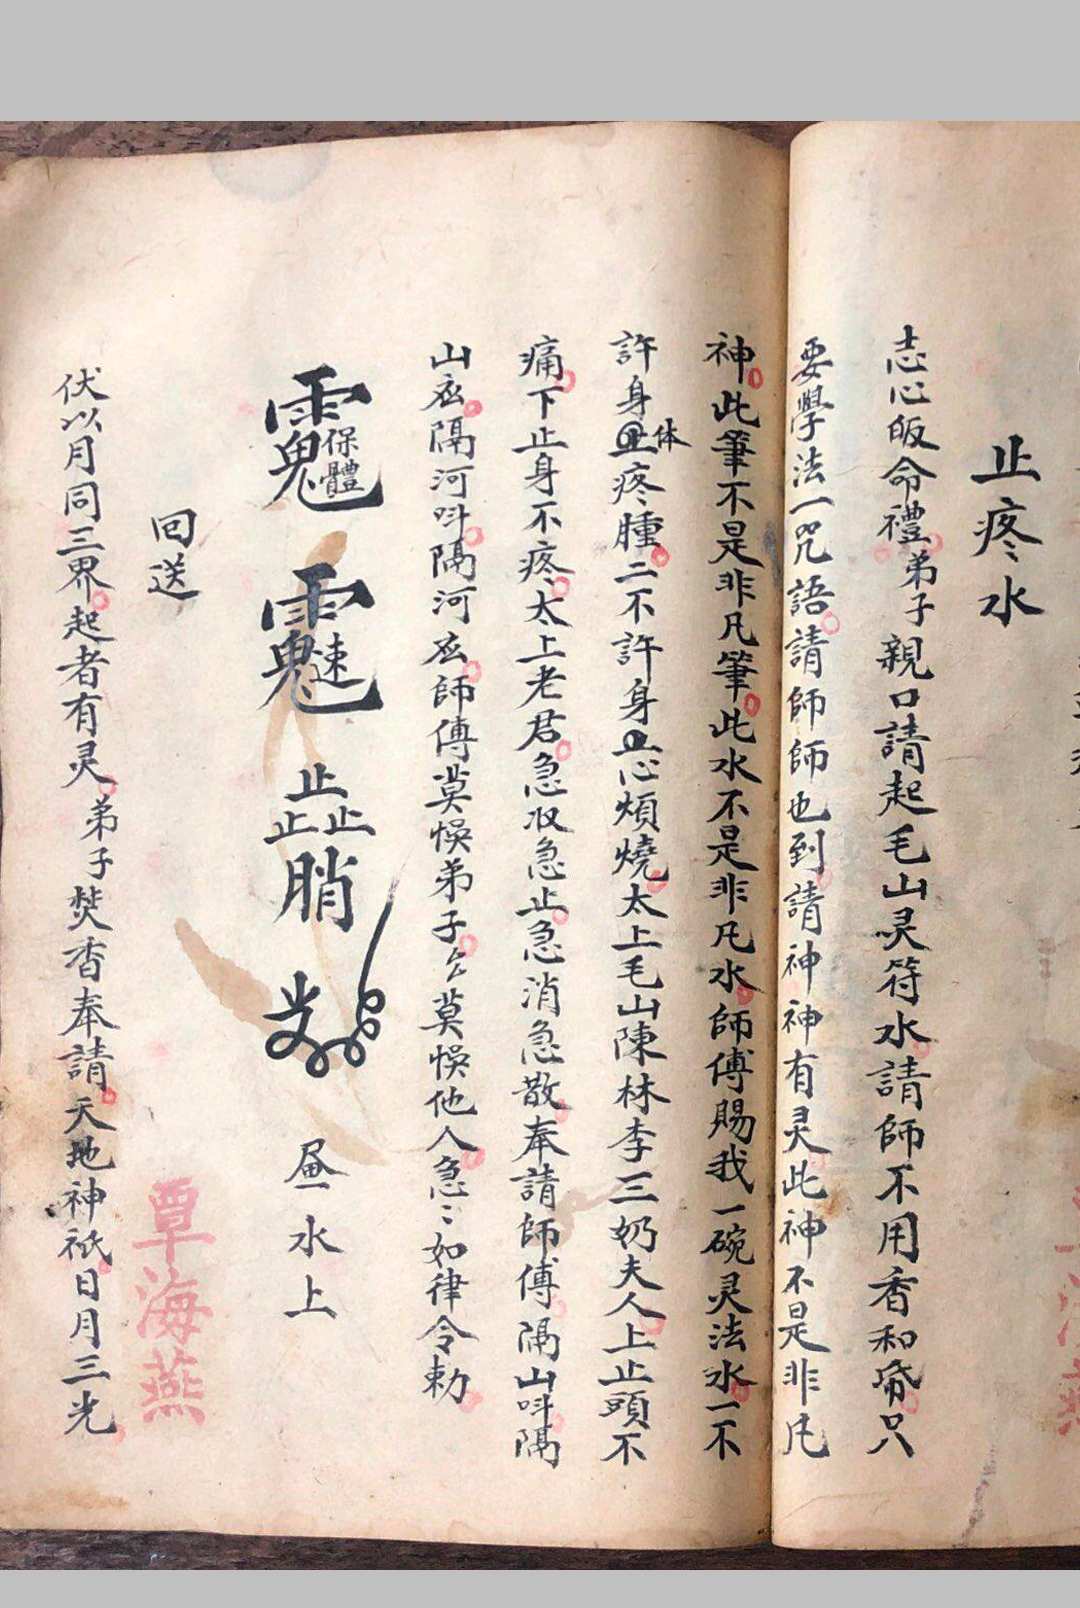 止疼水
志心皈命禮弟子親口請起毛山灵符水請師不用香和帋只
要學法一咒語請師師也到請神神有灵此神不是非凡
神此筆不是非凡筆此水不是非凡水師傅賜我一碗灵法水一不
許身体疼腫二不許身心煩燒太上毛山陳林李三奶夫人上止頭不
痛下止身不疼太上老君急收急止急消急散奉請師傅隔山呌隔
山应隔河呌隔河应師傅莫悞弟子莫悞他人急〻如律令勅
保體
速
止止止
水上
回送
伏以月同三界起者有灵弟子焚香奉請天地神祇日月三光
覃海燕